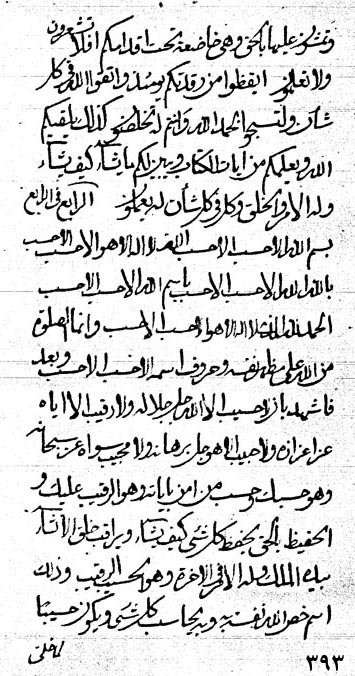 وتمشون عليها بالحق وهي خاضعة تحت اقدامكم افلا تشعرون
ولا تعلمون ايقظوا من رقدتكم يومئذ واتقوا الله في كل
شأن ولتسبحو الحمد الله وانتم لا تخلصون كذلك يلقيكم
الله ويعلمكم من ايات الكتاب وينزلكم ما يشآء كيف يشآء
وله الامر والخلق وكل في كل شأن له يعملون الرابع في الرابع
بسم الله الاحسب الاحسب الله لا اله الا هو الاحسب الاحسب
بالله الله الاحسب الاحسب باسم الله الاحسب الاحسب
الحمد لله الذي لا اله الا هو الاحسب الاحسب وانما الصلوة
من الله على مظهر نفسه وحروف اسمه الاحسب الاحسب وبعد
فاشهد بان لا حسيب الا الله جل جلاله ولا رقيب الا اياه
عز اعزازه ولا حسيب الا هو جل برهانه ولا مجيب سواه عز سبحانه
وهو حسبك وحسب من امن باياته وهو الرقيب عليك و
الحفيظ بالحق يحفظ كل شئ كيف يشآء ويراقب خلق الاشيآء
بيده الملك وله الامر في الاخرة وهو الحسيب الرقيب وذلك
اسم خص الله نفسه به وبه يحاسب كل شئ ويكون حسيبا
لخلق
٣٩٣